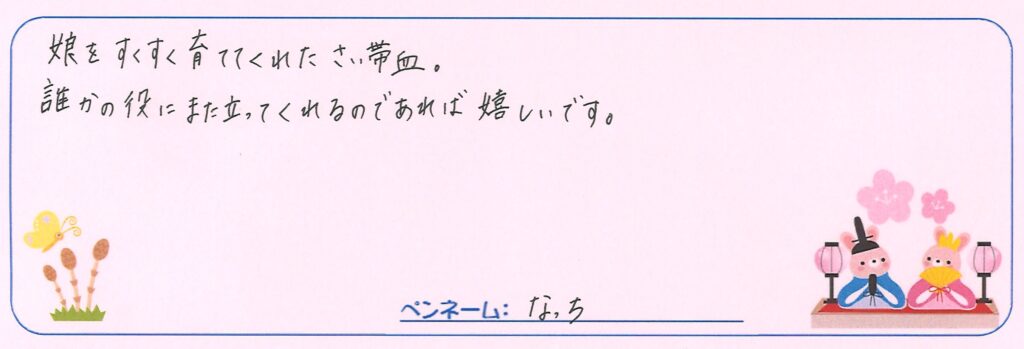 娘をすくすく育ててくれたさい帯血。
誰かの役にまた立ってくれるのであれば嬉しいです。
ペンネーム: なっち